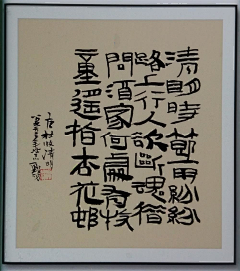 清明時節雨紛紛
路上行人欲斷魂借
問酒家何處有牧
童遙指杏花邨
唐杜牧清明